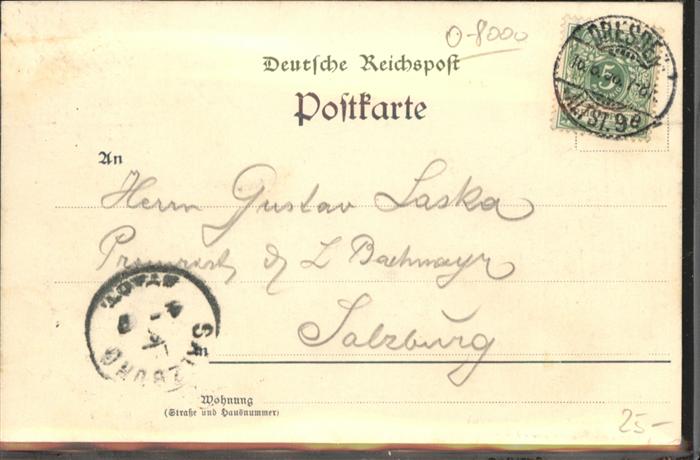 0-8000
Deutsche Reichspost
Postkarte
DRESDEN
5
ALTST. 9e
An
Herrn Gustav Laska
L Bachmayr
Salzburg
SALZBURG
STADT
in
Wohnung
(Straße und Hausnummer)
25,-